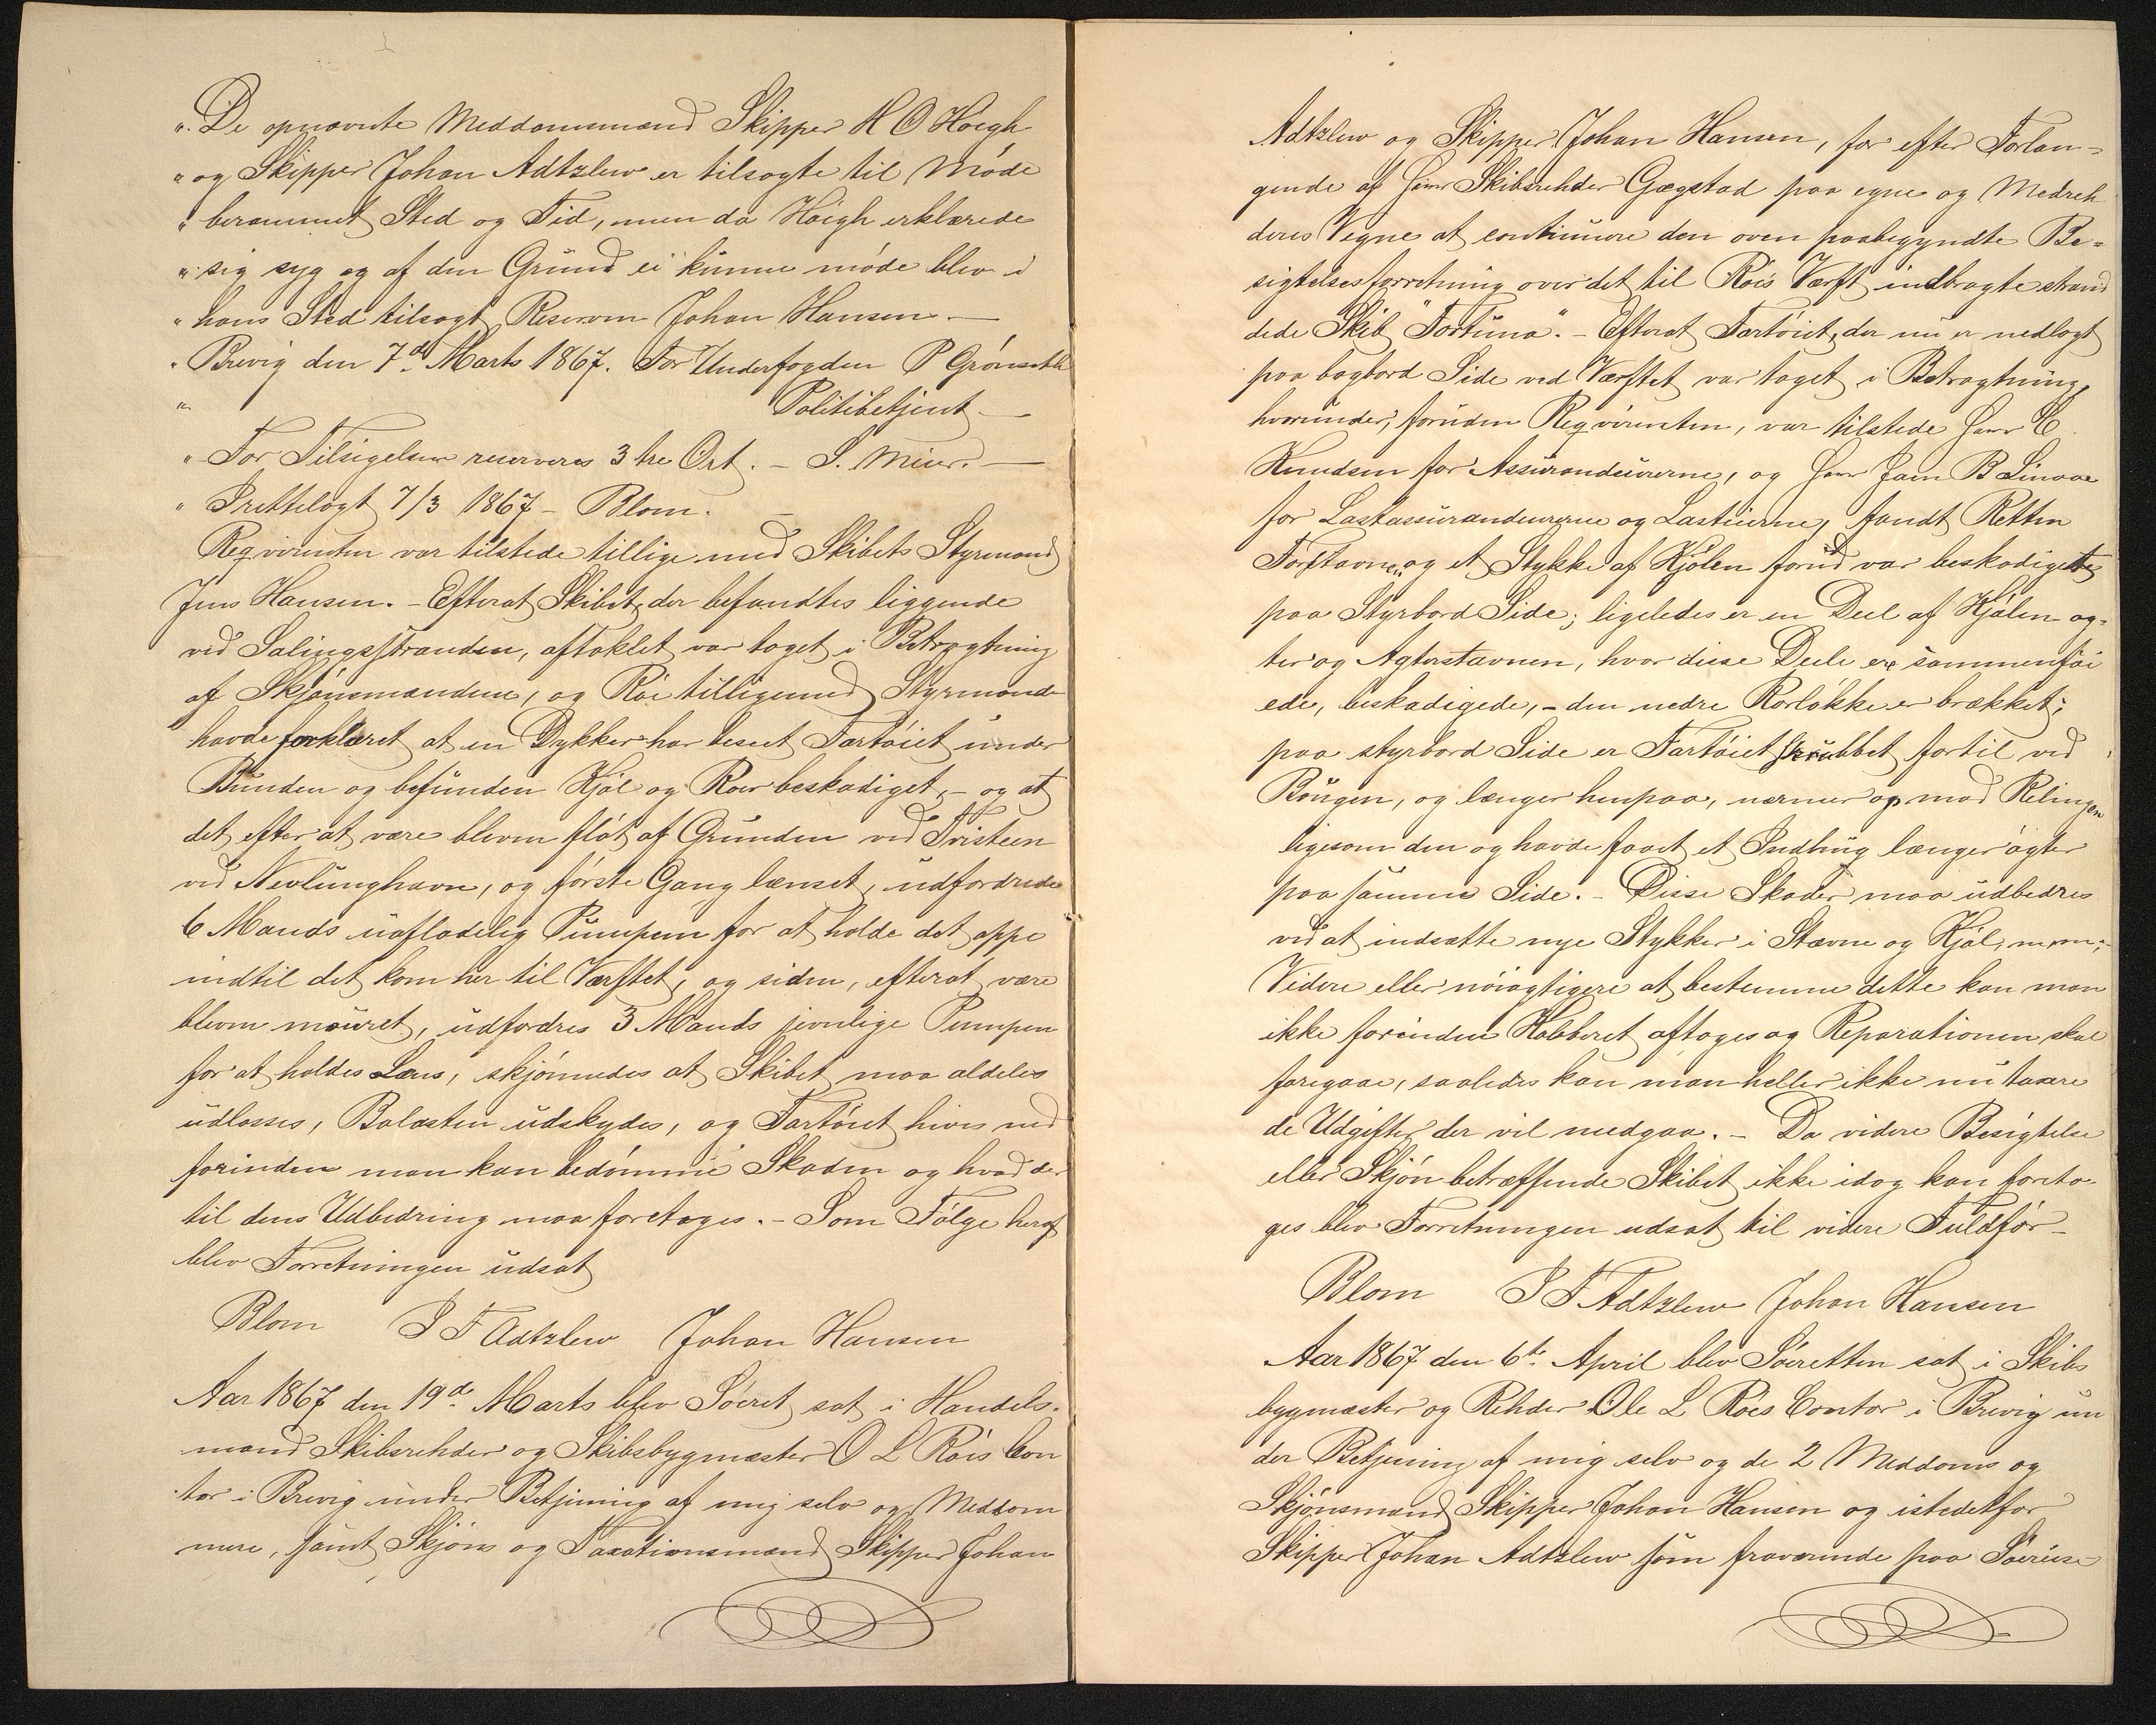 ". De opnævnte Meddomsmænd Skipper H O Høegh
" og Skipper Johan Adtzlew er tilsagte til Møde
" berammet Sted og Tid, men da Høigh erklærede
" sig syg og af den Grund ei kunne møde blev i
" hans Sted tilsagt Reserven Johan Hansen. —
" Brevig den 7d. Marts 1867. For Underfogden P Grønseth
" Politibetjent —
" For Tilsigelsen reserveres 3 tre Ort. – S. Meier. —
" Irettelagt 7/3 1867 – Blom. –
Reqvirenten var tilstede tillige med Skibets Styrmand
Jens Hansen. – Efterat Skibet, der befandtes liggende
ved Salingsstranden, aftaklet var taget i Betragtning
af Skjønsmændene, og Røe tilligemed Styrmanden
havde forklaret at en Dykker har beseet Fartøiet under
Bunden og befunden Kjøl og Roer beskadiget, – og at
det efter at være bleven fløt af Grunden ved Tvisteen
ved Nevlunghavn, og første Gang lænset, udfordrede
6 Mands uafladelig Pumpen for at holde det oppe
indtil det kom her til Værftet, og siden, efterat være
bleven mouret, udfordres 3 Mands jevnlige Pumpen
for at holdes Læns, skjønnedes at Skibet maa aldeles
udlosses, Balasten udskydes, og Fartøiet hives ned
forinden man kan bedømme Skaden og hvad der
til dens Udbedring maa foretages. – Som Følge heraf
blev Forretningen udsat
Blom J F Adtzlew Johan Hansen
Aar 1867 den 19d. Marts blev Søeret sat i Handels-
mand Skibsrehder og Skibsbygmester O L Røis Con
tor i Brevig under Betjening af mig selv og Meddom
mere, samt Skjøns og Taxationsmænd Skipper Johan
Adtzlew og Skipper Johan Hansen, for efter Forlan-
gende af Herr Skibsrehder Gøgstad paa egne og Medreh
deres Vegne at continuere den oven paabegyndte Be-
sigtelsesforretning over det til Røis Værft indbragte strand
dede Skib "Fortuna". – Efterat Fartøiet, der nu er nedlagt
paa bagbord Side ved Værftet var taget i Betragtning,
hvorunder, foruden Reqvirenten, var tilstede Herr C.
Knudsen for Assurandeurerne, og Herr Jacn B Linaae
for Lastassurandeurerne og Lasteierne, fandt Retten
Forstavnen og et Stykke af Kjølen forud var beskadiget
paa Styrbord Side; ligeledes er en Deel af Kjølen ag-
ter og Agterstavnen, hvor disse Dele ere sammenføi
ede, beskadigede, – den nedre Rorløkke er brækket;
paa styrbord Side er Fartøiet skrubbet fortil ved
Bougen, og længer henpaa, nærmer op mod Relingen
ligesom den og havde faaet et Indhug længer agter
paa samme Side. – Disse Skader maa udbedres
ved at indsætte nye Stykker i Stævne og Kjøl, m. m.;
Videre eller nøiagtigere at bestemme dette kan man
ikke forinden Kobberet aftages og Reparationen skal
foregaae, saaledes kan man heller ikke nu taxere
de Udgifter der vil medgaa. – Da videre Besigtelse
eller Skjøn betræffende Skibet ikke idag kan foreta-
ges blev Forretningen udsat til videre Fuldfør –
Blom J F Adtzlew Johan Hansen
Aar 1867 den 6te. April blev Søeretten sat i Skibs
bygmester og Rehder Ole L Røis Contor i Brevig un
der Betjening af mig selv og de 2 Meddoms og
Skjønsmænd Skipper Johan Hansen og istedetfor
Skipper Johan Adtzlew som fraværende paa Søereise